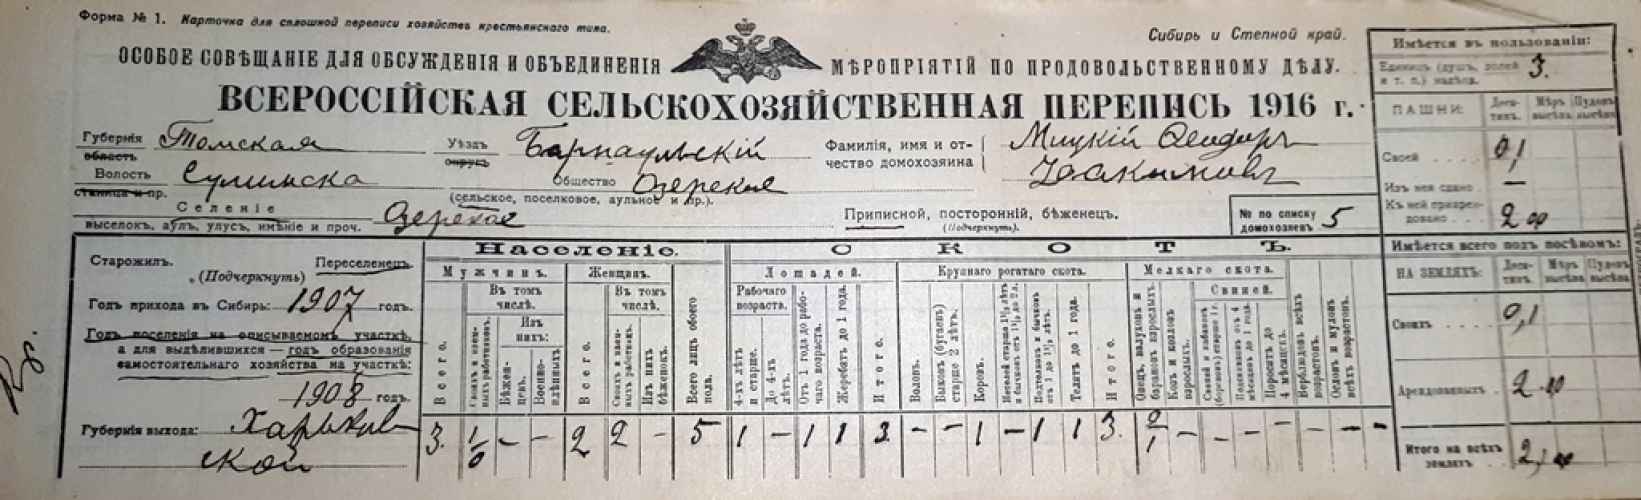 Форма № 1. Карточка для сплошной переписи хозяйствъ крестьянскаго типа.
Сибирь и Степной край.
ОСОБОЕ СОВѢЩАНІЕ ДЛЯ ОБСУЖДЕНІЯ И ОБЪЕДИНЕНІЯ МѢРОПРІЯТІЙ ПО ПРОДОВОЛЬСТВЕННОМУ ДѢЛУ.
ВСЕРОССІЙСКАЯ СЕЛЬСКОХОЗЯЙСТВЕННАЯ ПЕРЕПИСЬ 1916 г.
Губернія Томская Уѣздъ Барнаульскій Фамилія, имя и от- Мицкій
область округъ чество домохозяина
Волость Общество Озерское
станица и пр. (сельское, поселковое, аульное и пр.).
Селеніе Озерское Приписной, посторонній, бѣженецъ. № по списку 5
выселокъ, аулъ, улусъ, имѣніе и проч. (Подчеркнуть). домохозяевъ
Старожилъ. Переселенецъ.
(Подчеркнуть)
Годъ прихода въ Сибирь: 1907 годъ.
Годъ поселенія на описываемомъ участкѣ,
а для выдѣлившихся — годъ образованія
самостоятельнаго хозяйства на участкѣ:
1908 годъ.
Губернія выхода: Харьков
ской
Населеніе.
Мужчинъ. Женщинъ.
Всего.
Въ томъ числѣ.
Своихъ и наем-ныхъ работниковъ.
Изъ нихъ:
Бѣжен-цевъ.
Военно-плѣнныхъ.
Всего.
Въ томъ числѣ.
Изъ нихъ бѣженокъ.
Всего лицъ обоего пола.
СКОТЪ.
Лошадей.
Рабочаго возраста.
4-хъ лѣтъ и старше.
До 4-хъ лѣтъ.
Отъ 1 года до рабо-чаго возраста.
Жеребятъ до 1 года.
Итого.
Крупнаго рогатаго скота.
Воловъ.
Быковъ (бугаевъ) старше 2 лѣтъ.
Коровъ.
Нетелей старше 1½ лѣтъ и бычковъ отъ 1½ до 2 л.
Подтелковъ и бычковъ отъ 1 до 1½ лѣтъ.
Телятъ до 1 года.
Итого.
Мелкаго скота.
Овецъ, валуховъ и барановъ взрослыхъ.
Козъ и козловъ взрослыхъ.
Свиней.
Поросятъ до 4 мѣсяцевъ.
Верблюдовъ всѣхъ возрастовъ.
Ословъ и муловъ всѣхъ возрастовъ.
3. 1/0 — — 2 2 — 5 1 — 1 1 3. — — 1 — 1 1 3. 2/1 — — — — — —
Имѣется въ пользованіи:
Единицъ (душъ, долей 3.
и т. п.) надѣла.
ПАШНИ: Деся-тинъ. Мѣръ высѣва. Пудовъ высѣва.
Своей 0,1
Изъ нея сдано —
Къ ней приарен-
довано 2
Имѣется всего подъ посѣвомъ:
НА ЗЕМЛЯХЪ: Деся-тинъ. Мѣръ высѣва. Пудовъ высѣва.
Своихъ 0,1
Арендованныхъ 2
Итого на всѣхъ
земляхъ 2,